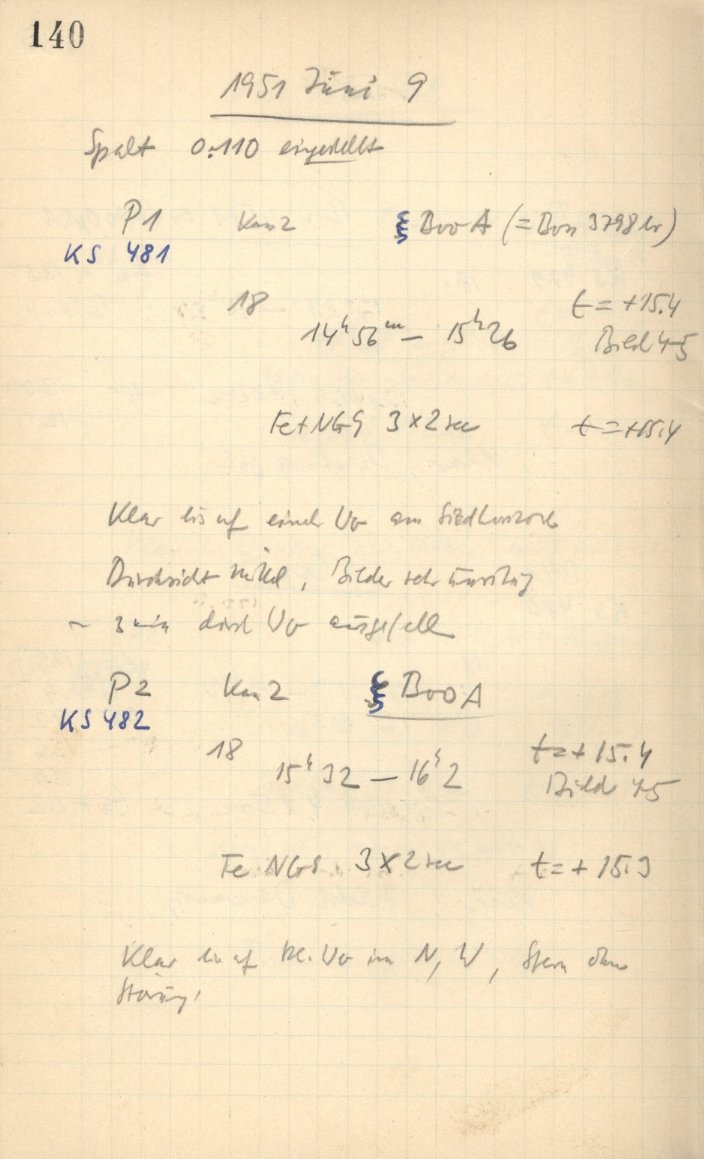 140
1951 Juni 9
Spalt 0.110 eingestellt
P1 Kam 2 ξ Boo A (= Boss 3798 br)
KS 481
18 14ʰ56ᵐ — 15ʰ26 t = +15.4
Bild 4-5
Fe+NG9 3×2 sec t = +15.4
Klar bis auf Vo am Südhorizont
Durchsicht mittel, Bilder sehr unruhig
~ 3 min durch Vo ausgefallen
P2 Kam 2 ξ Boo A
KS 482
18 15ʰ32 — 16ʰ2 t = + 15.4
Bild 4-5
Fe NG9 3×2 sec t = + 15.3
Klar bis auf kl. Vo im N, W, Stern ohne
Störung.